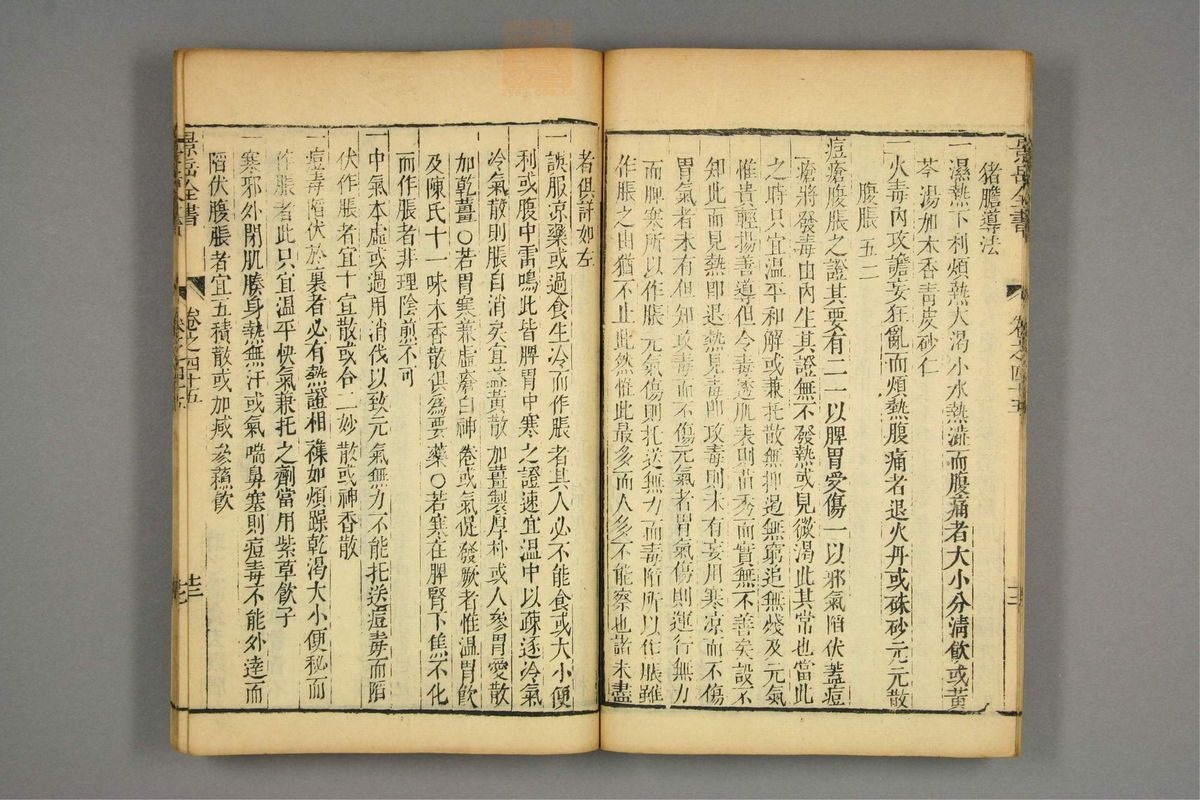 景岳全書
卷之四十五
十三
猪膽導法
一濕熱下利煩熱大渴小水熱澁而腹痛者大小分清飲或黃
芩湯加木香青皮砂仁
一火毒內攻譫妄狂亂而煩熱腹痛者退火丹或硃砂元元散
腹脹 五二
痘瘡腹脹之證其要有二一以脾胃受傷一以邪氣陷伏蓋痘
瘡將發毒由內生其證無不發熱或見微渴此其常也當此
之時只宜溫平和解或兼托散無抑遏無窮追無殘及元氣
惟貴輕揚善導但令毒透肌表則苗秀而實無不善矣設不
知此而見熱卽退熱見毒卽攻毒則未有妄用寒凉而不傷
胃氣者未有但知攻毒而不傷元氣者胃氣傷則運行無力
而脾寒所以作脹元氣傷則托送無力而毒陷所以作脹雖
作脹之由猶不止此然惟此最多而人多不能察也諸未盡
者俱詳如左
一誤服凉藥或過食生冷而作脹者其人必不能食或大小便
利或腹中雷鳴此皆脾胃中寒之證速宜溫中以疎逐冷氣
冷氣散則脹自消矣宜益黃散加薑製厚朴或人參胃愛散
加乾薑○若胃寒兼虛
及陳氏十一味木香散俱爲要藥○若寒在脾腎下焦不化
而作脹者非理陰煎不可
一中氣本虛或過用消伐以致元氣無力不能托送痘毒而陷
伏作脹者宜十宣散或合二妙散或神香散
一痘毒陷伏於裏者必有熱證相襍如煩躁乾渴大小便秘而
作脹者此只宜溫平快氣兼托之劑當用紫草飲子
一寒邪外閉肌腠身熱無汗或氣喘鼻塞則痘毒不能外達而
陷伏腹脹者宜五積散或加減參蘇飲
景岳全書
卷之四十五